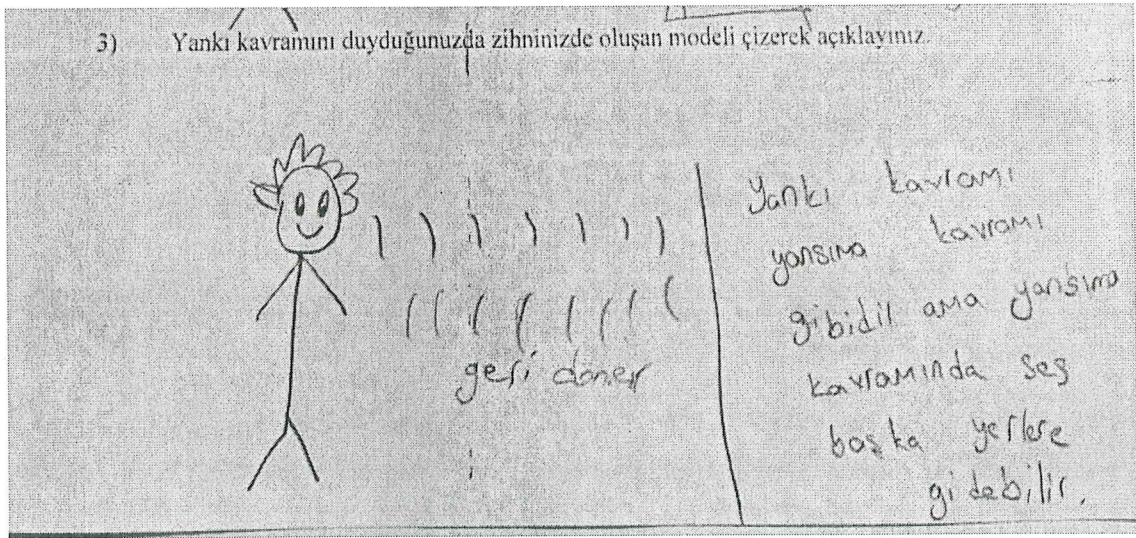 3) Yankı kavramını duyduğunuzda zihninizde oluşan modeli çizerek açıklayınız.
geri döner
Yankı kavramı
yansıma kavramı
gibidir ama yansıma
kavramında ses
başka yerlere
gidebilir.